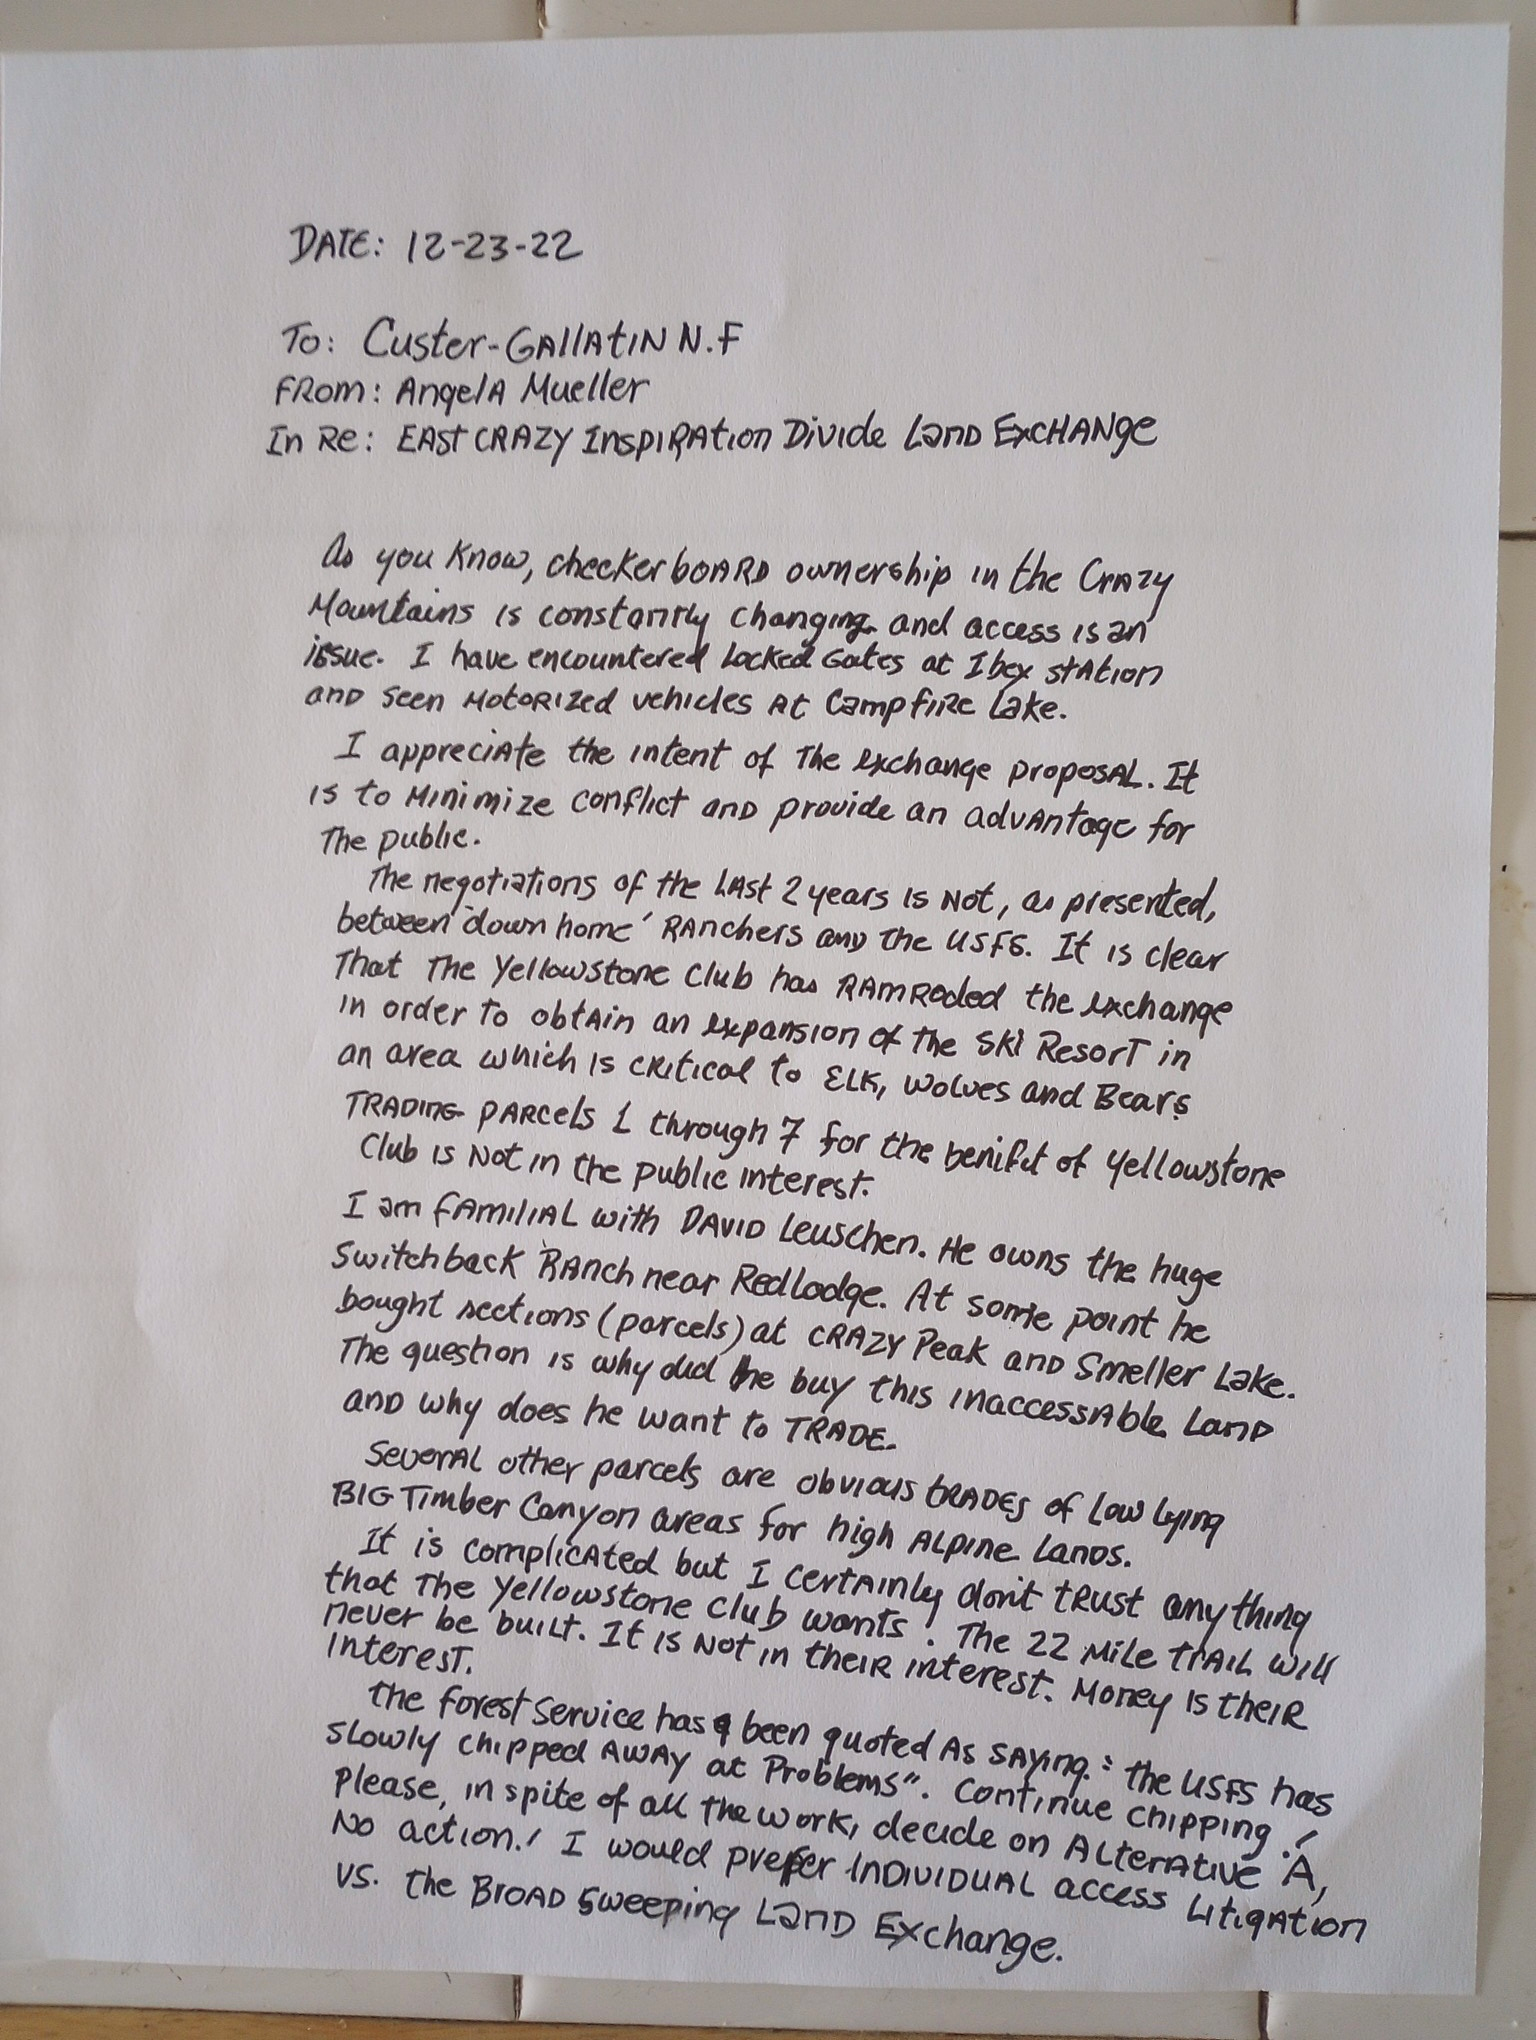 DATE: 12-23-22
To: Custer-Gallatin N.F
From: Angela Mueller
In Re: East Crazy Inspiration Divide Land Exchange
As you know, checkerboard ownership in the Crazy
Mountains is constantly changing and access is an
issue. I have encountered locked gates at Ibex station
and seen motorized vehicles at Campfire Lake.
I appreciate the intent of the exchange proposal. It
is to minimize conflict and provide an advantage for
the public.
The negotiations of the last 2 years is not, as presented,
between 'down home' Ranchers and the USFS. It is clear
that the Yellowstone Club has ramroded the exchange
in order to obtain an expansion of the Ski Resort in
an area which is critical to Elk, Wolves and Bears
Trading parcels 1 through 7 for the benifit of Yellowstone
Club is not in the public interest.
I am familial with David Leuschen. He owns the huge
Switchback Ranch near Redlodge. At some point he
bought sections (parcels) at Crazy Peak and Smeller Lake.
The question is why did he buy this inaccessable land
and why does he want to trade.
Several other parcels are obvious trades of low lying
Big Timber Canyon areas for high alpine lands.
It is complicated but I certainly don't trust anything
that the Yellowstone Club wants! The 22 mile trail will
never be built. It is not in their interest. Money is their
interest.
The Forest Service has been quoted as saying: "the USFS has
slowly chipped away at problems". Continue chipping!
Please, in spite of all the work, decide on Alterative A,
No action! I would prefer individual access litigation
vs. the broad sweeping Land Exchange.